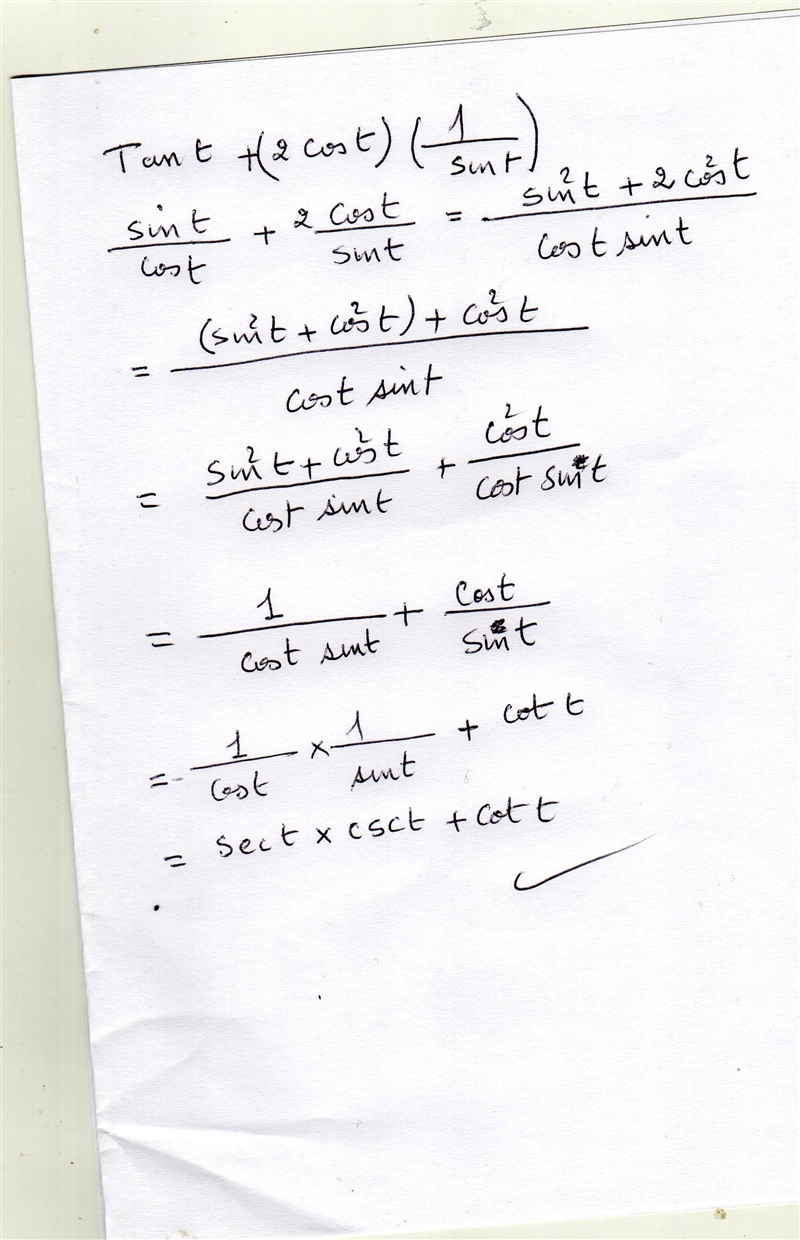 Tan t + (2 cos t) (1/sin t)
sin t/cos t + 2 cos t/sin t = sin²t + 2 cos²t/cos t sin t
= (sin²t + cos²t) + cos²t/cos t sin t
= sin²t + cos²t/cos t sin t + cos²t/cos t sin t
= 1/cos t sin t + cos t/sin t
= 1/cos t × 1/sin t + cot t
= sec t × csc t + cot t